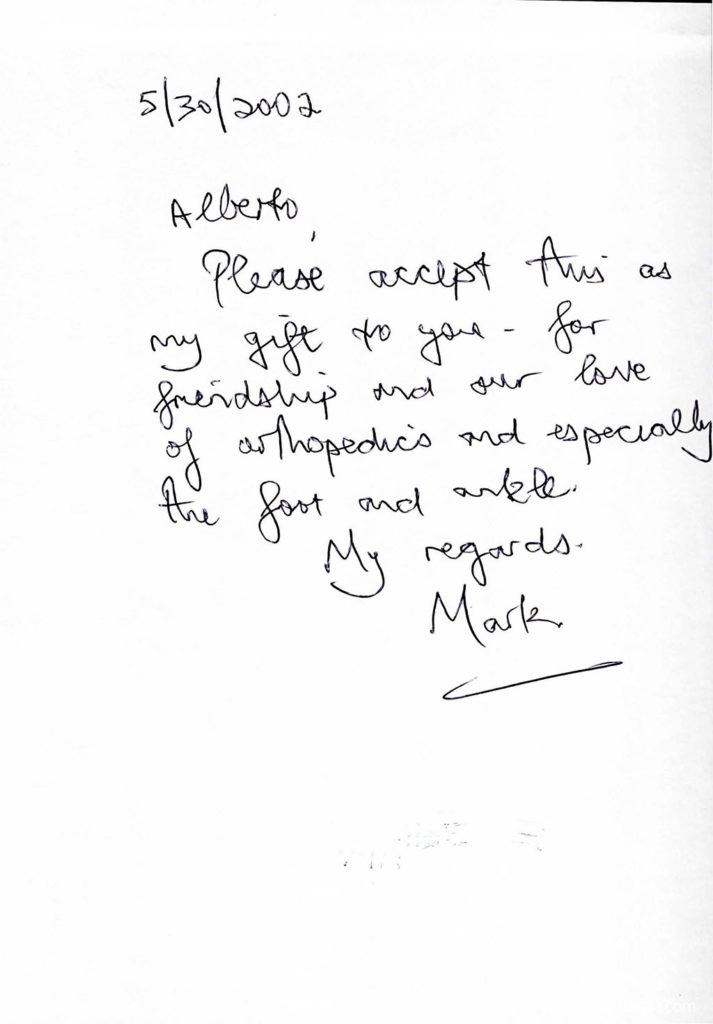 5/30/2002
Alberto,
Please accept this as
my gift to you - for
friendship and our love
of orthopedics and especially
the foot and ankle.
My regards.
Mark